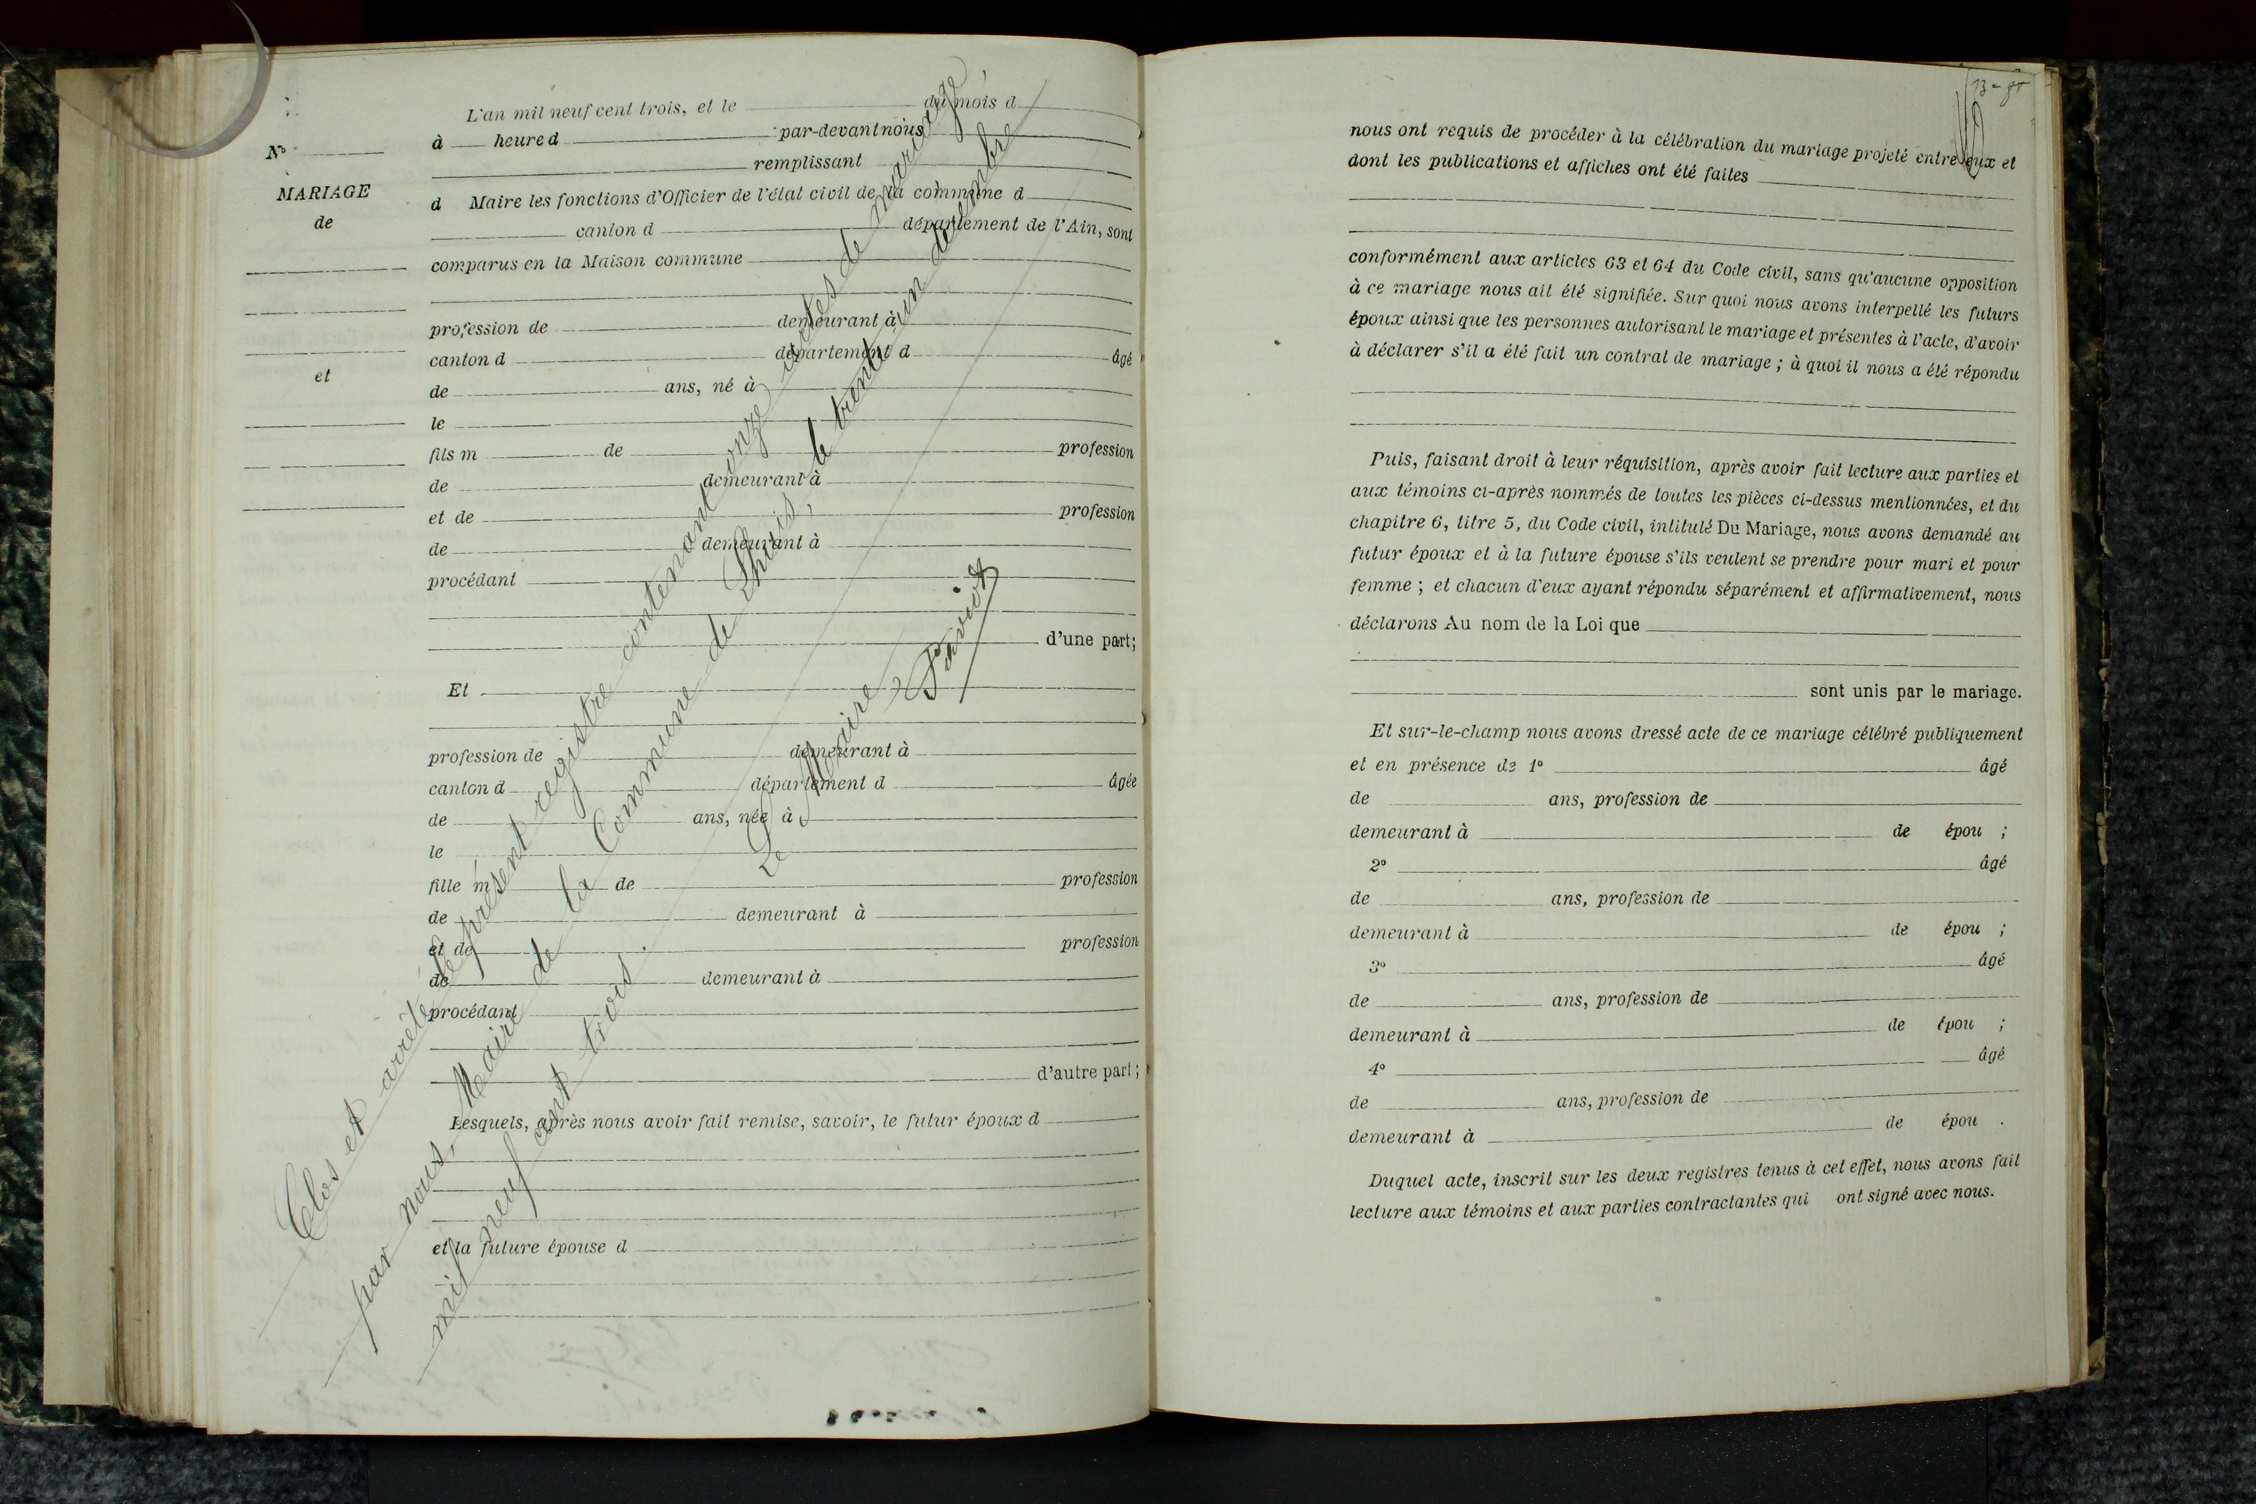 L'an mil neuf cent trois, et le du mois d
à heure d par-devant nous
remplissant
d Maire les fonctions d'Officier de l'état civil de la commune d
canton d département de l'Ain, sont
comparus en la Maison commune
profession de demeurant à
canton d département d âgé
de ans, né à
le
fils m de profession
de demeurant à
et de profession
de demeurant à
procédant
d'une part;
Et
profession de demeurant à
canton d département d âgée
de ans, née à
le
fille m de profession
de demeurant à
et de profession
de demeurant à
procédant
d'autre part;
Lesquels, après nous avoir fait remise, savoir, le futur époux d
et la future épouse d
No
MARIAGE
de
et
Clos et arrêté le présent registre contenant onze actes de mariage,
par nous, Maire de la Commune de Lhuis, le trente un décembre
mil neuf cent trois.
Le Maire
nous ont requis de procéder à la célébration du mariage projeté entre eux et
dont les publications et affiches ont été faites
conformément aux articles 63 et 64 du Code civil, sans qu'aucune opposition
à ce mariage nous ait été signifiée. Sur quoi nous avons interpellé les futurs
époux ainsi que les personnes autorisant le mariage et présentes à l'acte, d'avoir
à déclarer s'il a été fait un contrat de mariage; à quoi il nous a été répondu
Puis, faisant droit à leur réquisition, après avoir fait lecture aux parties et
aux témoins ci-après nommés de toutes les pièces ci-dessus mentionnées, et du
chapitre 6, titre 5, du Code civil, intitulé Du Mariage, nous avons demandé au
futur époux et à la future épouse s'ils veulent se prendre pour mari et pour
femme; et chacun d'eux ayant répondu séparément et affirmativement, nous
déclarons Au nom de la Loi que
sont unis par le mariage.
Et sur-le-champ nous avons dressé acte de ce mariage célébré publiquement
et en présence de 1º âgé
de ans, profession de
demeurant à de épou ;
2º âgé
de ans, profession de
demeurant à de épou ;
3º âgé
de ans, profession de
demeurant à de épou ;
4º âgé
de ans, profession de
demeurant à de épou .
Duquel acte, inscrit sur les deux registres tenus à cet effet, nous avons fait
lecture aux témoins et aux parties contractantes qui ont signé avec nous.